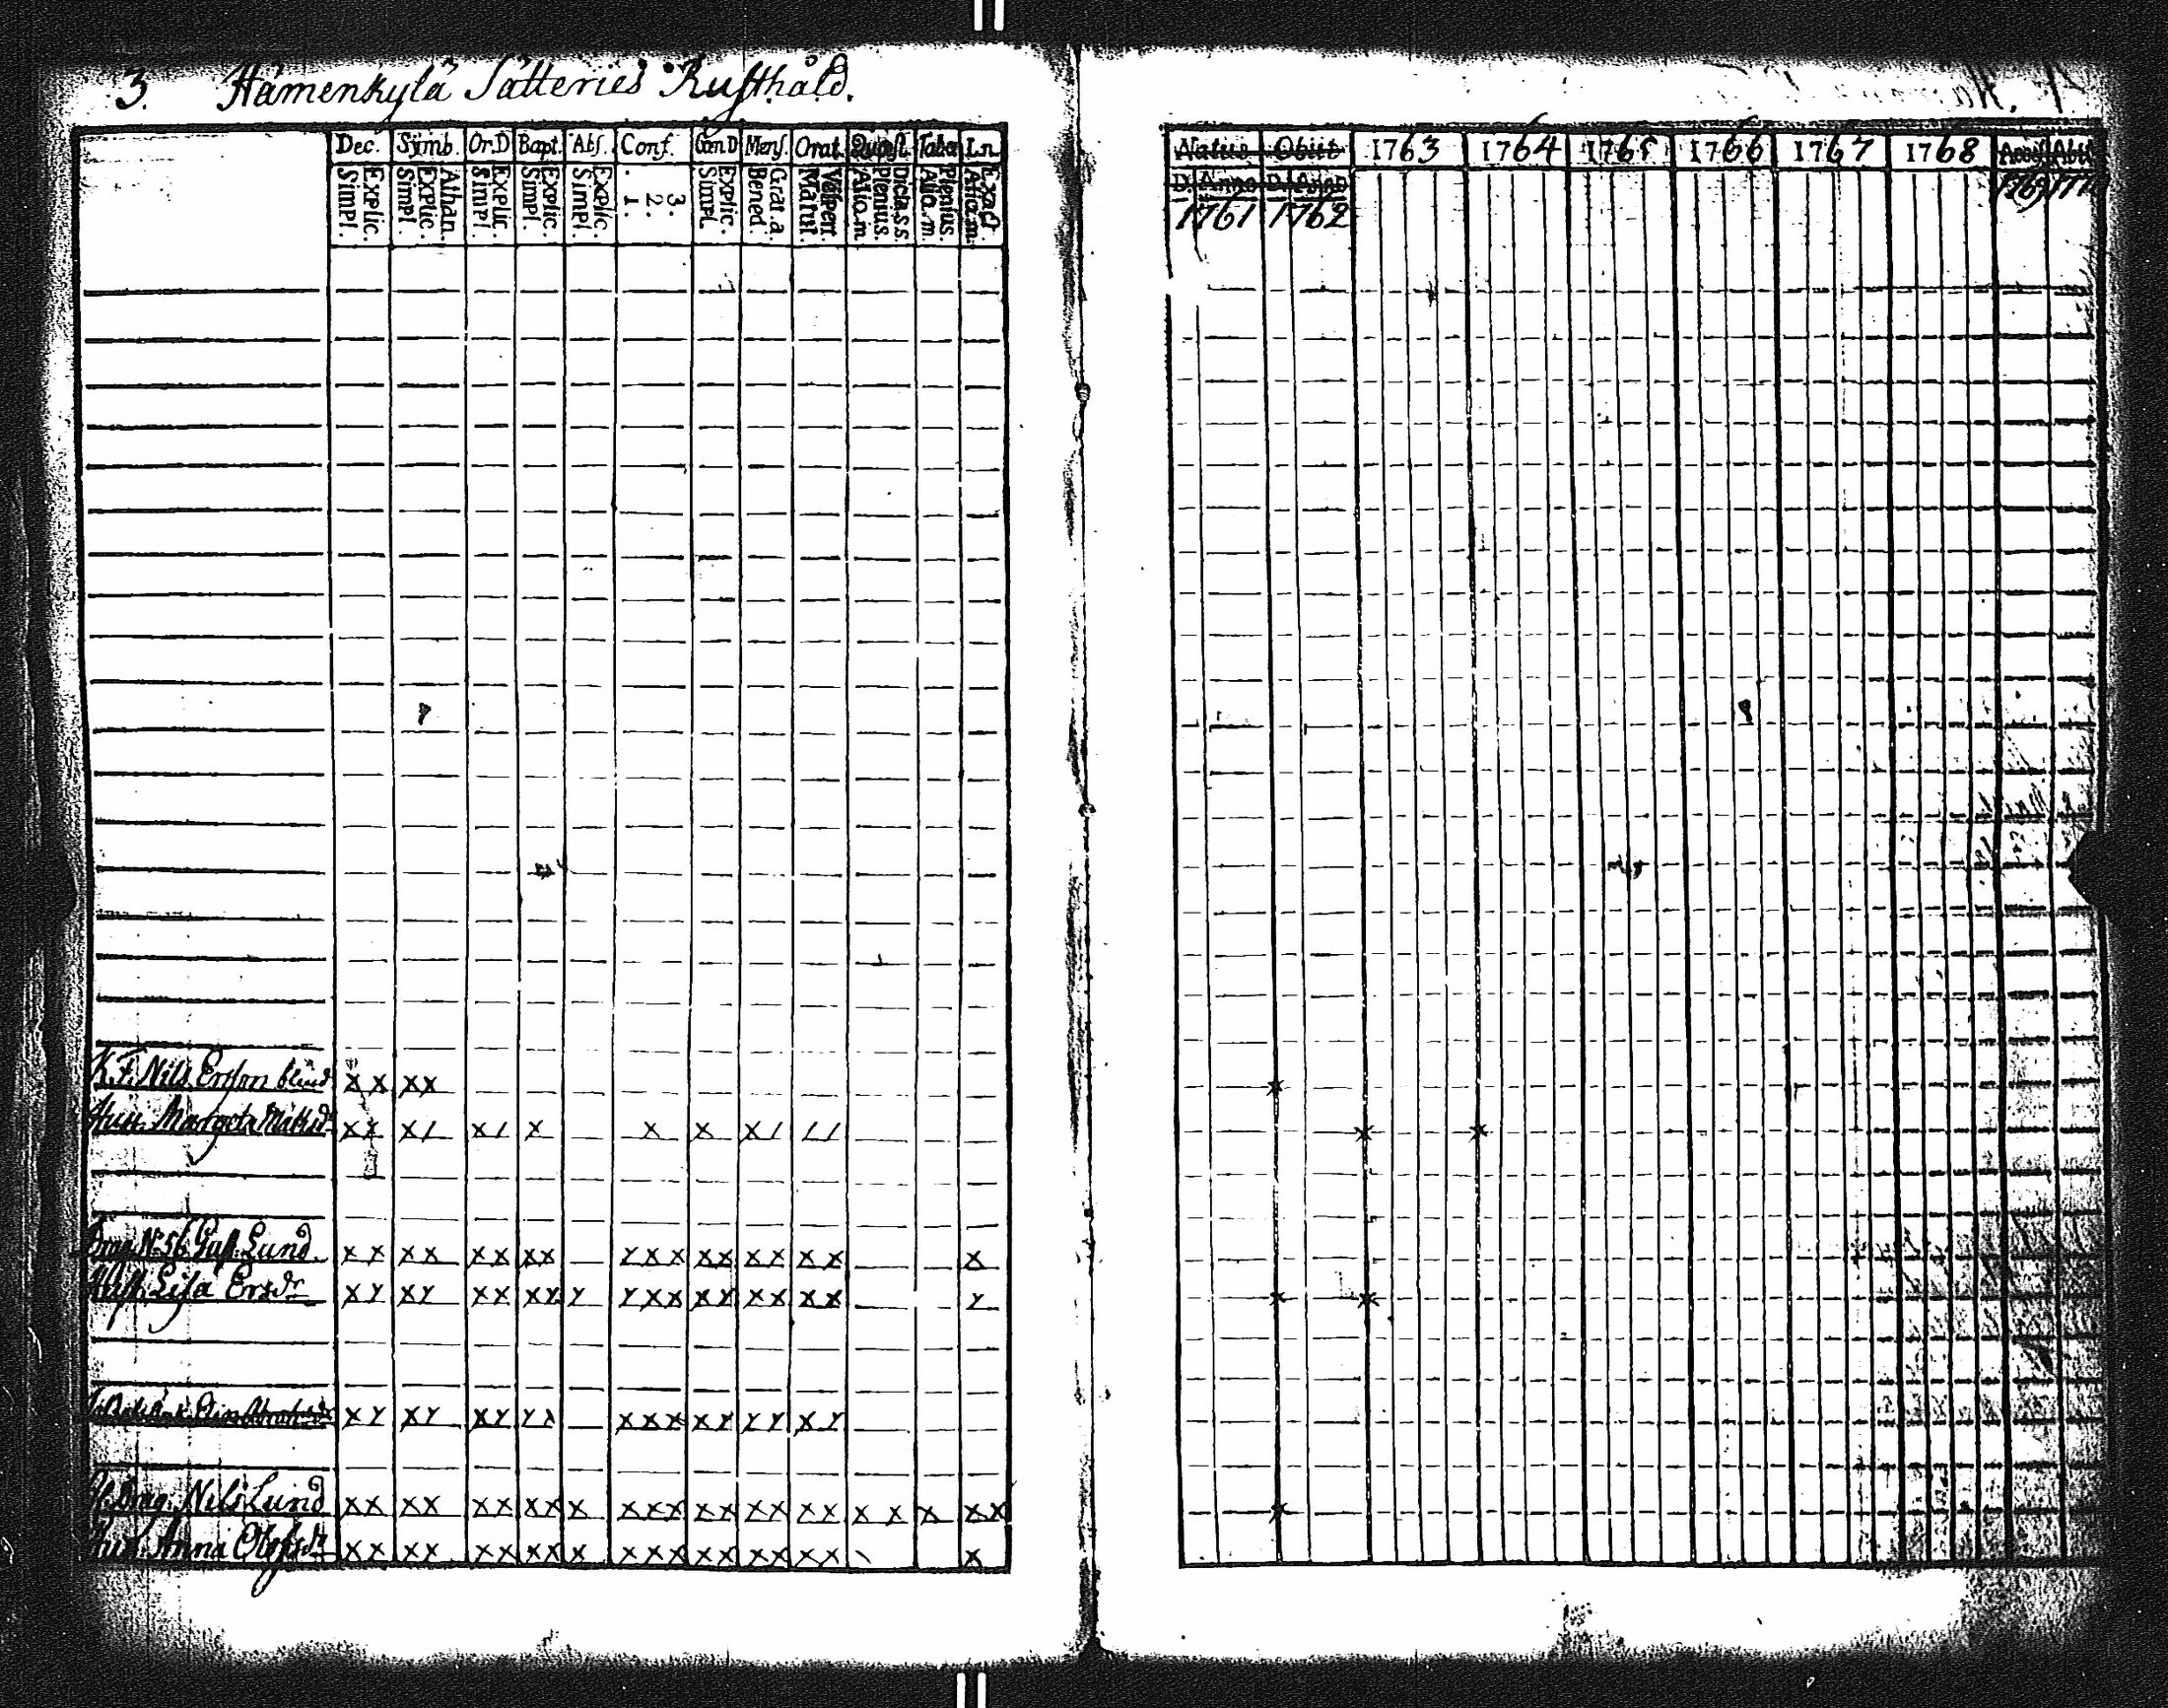 3. Hämenkylä Säteries Rusthåld.
Dec. Symb. Or.D Bapt. Abs. Conf. Can D Mens. Orat. Quæst. Tabæ Ln
Explic. Simpl. Athan. Explic. Simpl. Explic. Simpl. Explic. Simpl. Explic. Simpl. 3. 2. 1. Explic. Simpl. Grat. a. Bened. Vespert. Matut. Dicta. S.S. Plenius. Aliq. m. Plenius. Aliq. m. Exact. Aliq. m.
K.F. Nils Ersson blind x x x x
Hust. Margeta Matsdr x x x / x / x x x x / / /
Drag. N. 56. Gust. Lund. x x x x x x x x x x x x x x x x x x
Hust. Lisa Ersdr x y x y x x x x y y x x x y x x x x y
x y x y x y y x x x x x y y y x y
Drag. Nils Lund x x x x x x x x x x x x x x x x x x x x x x x
Hust. Anna Olofsdr x x x x x x x x x x x x x x x x x x x
Natus Obiit 1763 1764 1765 1766 1767 1768
D. Anno D. Anno 1769
1761 1762
x
x x
x x
x